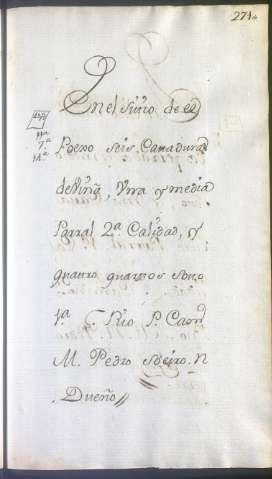 274
En el sitio de el
Poexo Seis Cavaduras
de Viña, Una y media
Parral 2ª Calidad, y
quatro quartos Soto
1ª C. Rio P. Cam
M. Pedro Soeiro. N
Dueño